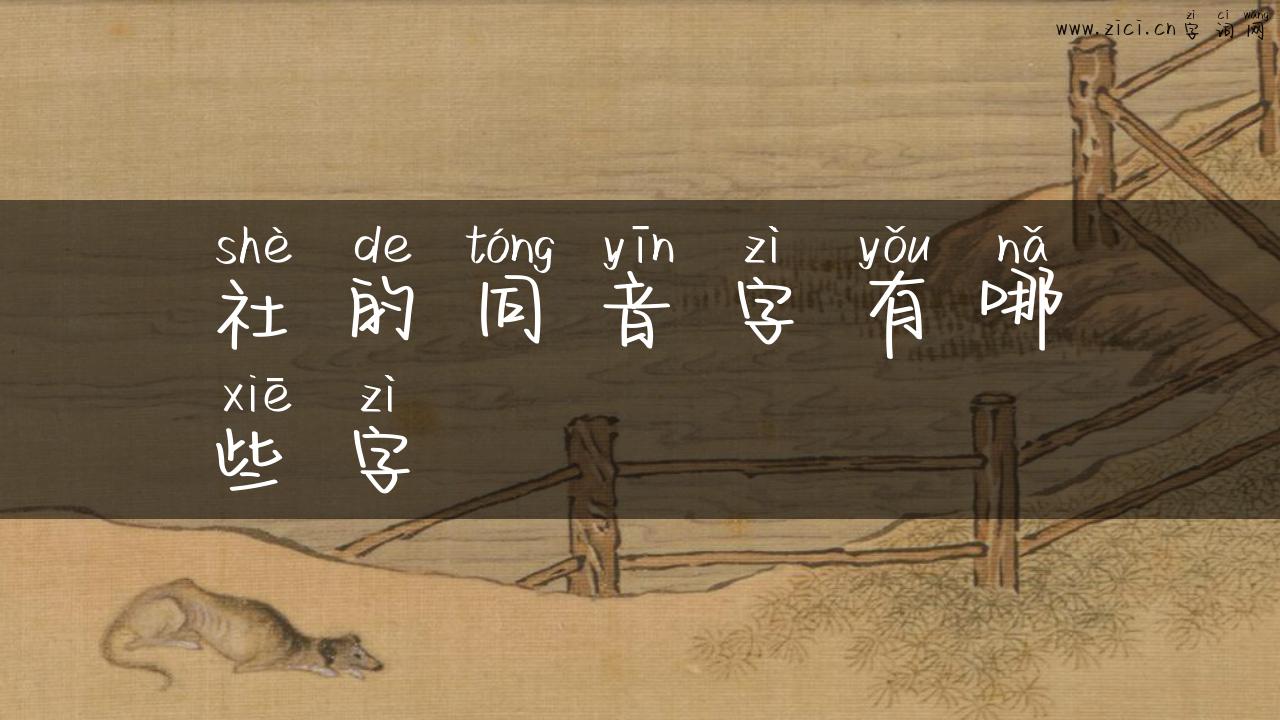 zì cí wǎng
www.zici.cn 字 词 网
shè de tóng yīn zì yǒu nǎ
社 的 同 音 字 有 哪
xiē zì
些 字